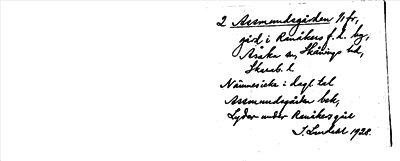 2 Assmundsgården 11 fr,
gård i Ranåkers f.d. by,
Åsaka sn, Skånings hd,
Skarab. l
Nämnes icke i dagl. tal
Assmundsgården bek,
Lyder under Ranåkers gård
J. Lindahl 1928.